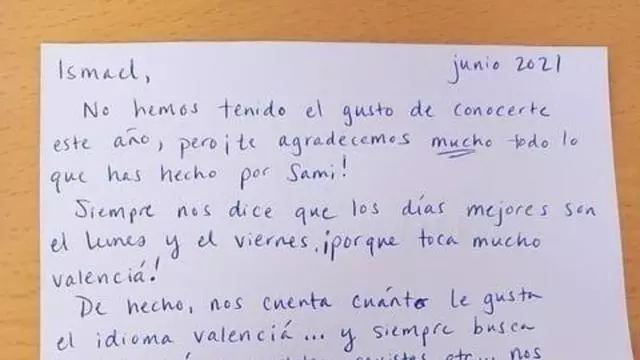 Ismael,
junio 2021
No hemos tenido el gusto de conocerte
este año, pero ¡te agradecemos mucho todo lo
que has hecho por Sami!
Siempre nos dice que los días mejores son
el lunes y el viernes, ¡porque toca mucho
valenciá!
De hecho, nos cuenta cuánto le gusta
el idioma valenciá... y siempre busca
etc... nos